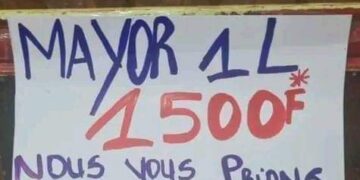 MAYOR 1L
1500F*
NOUS VOUS PRIONS